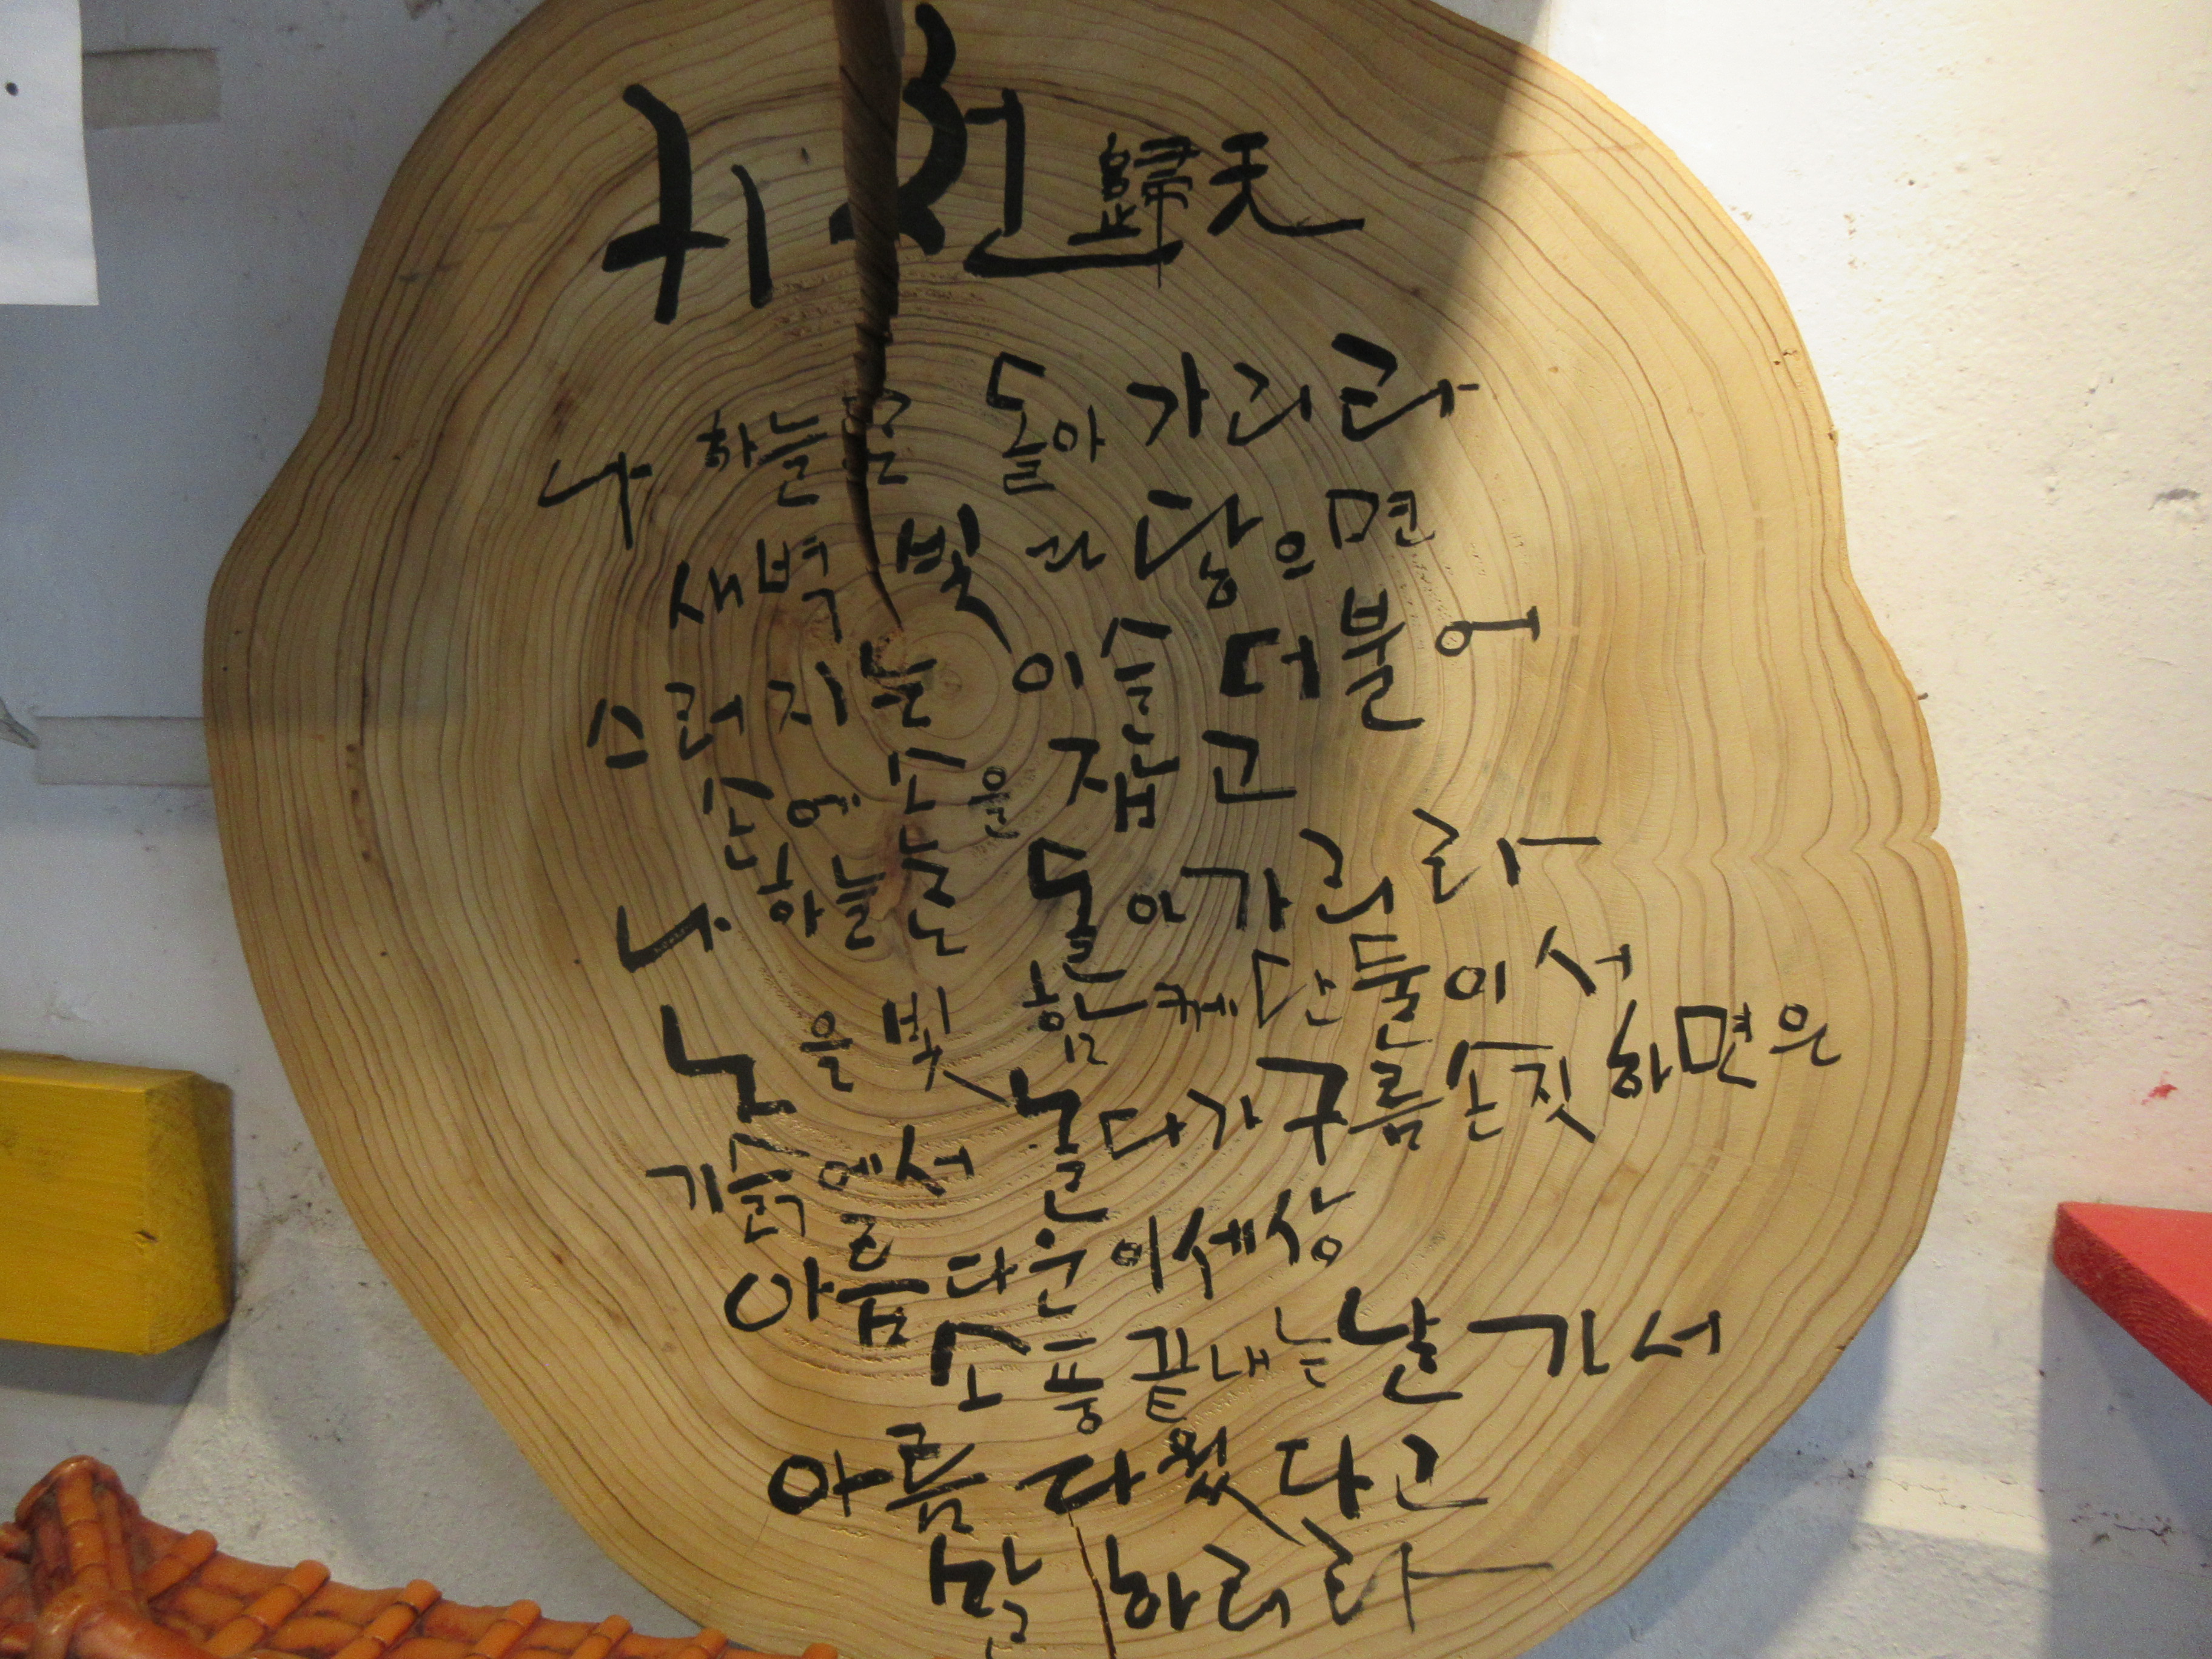 귀천 歸天
나 하늘로 돌아가리라
새벽 빛 라 닿으면
스러지는 이슬 더불어
손에 손을 잡고
나 하늘로 돌아가리라
노을 빛 함께 단 둘이서
기슭에서 놀다가 구름 손짓하면은
아름다운 이 세상
소풍 끝내는 날 가서
아름다웠다고
말 하리라